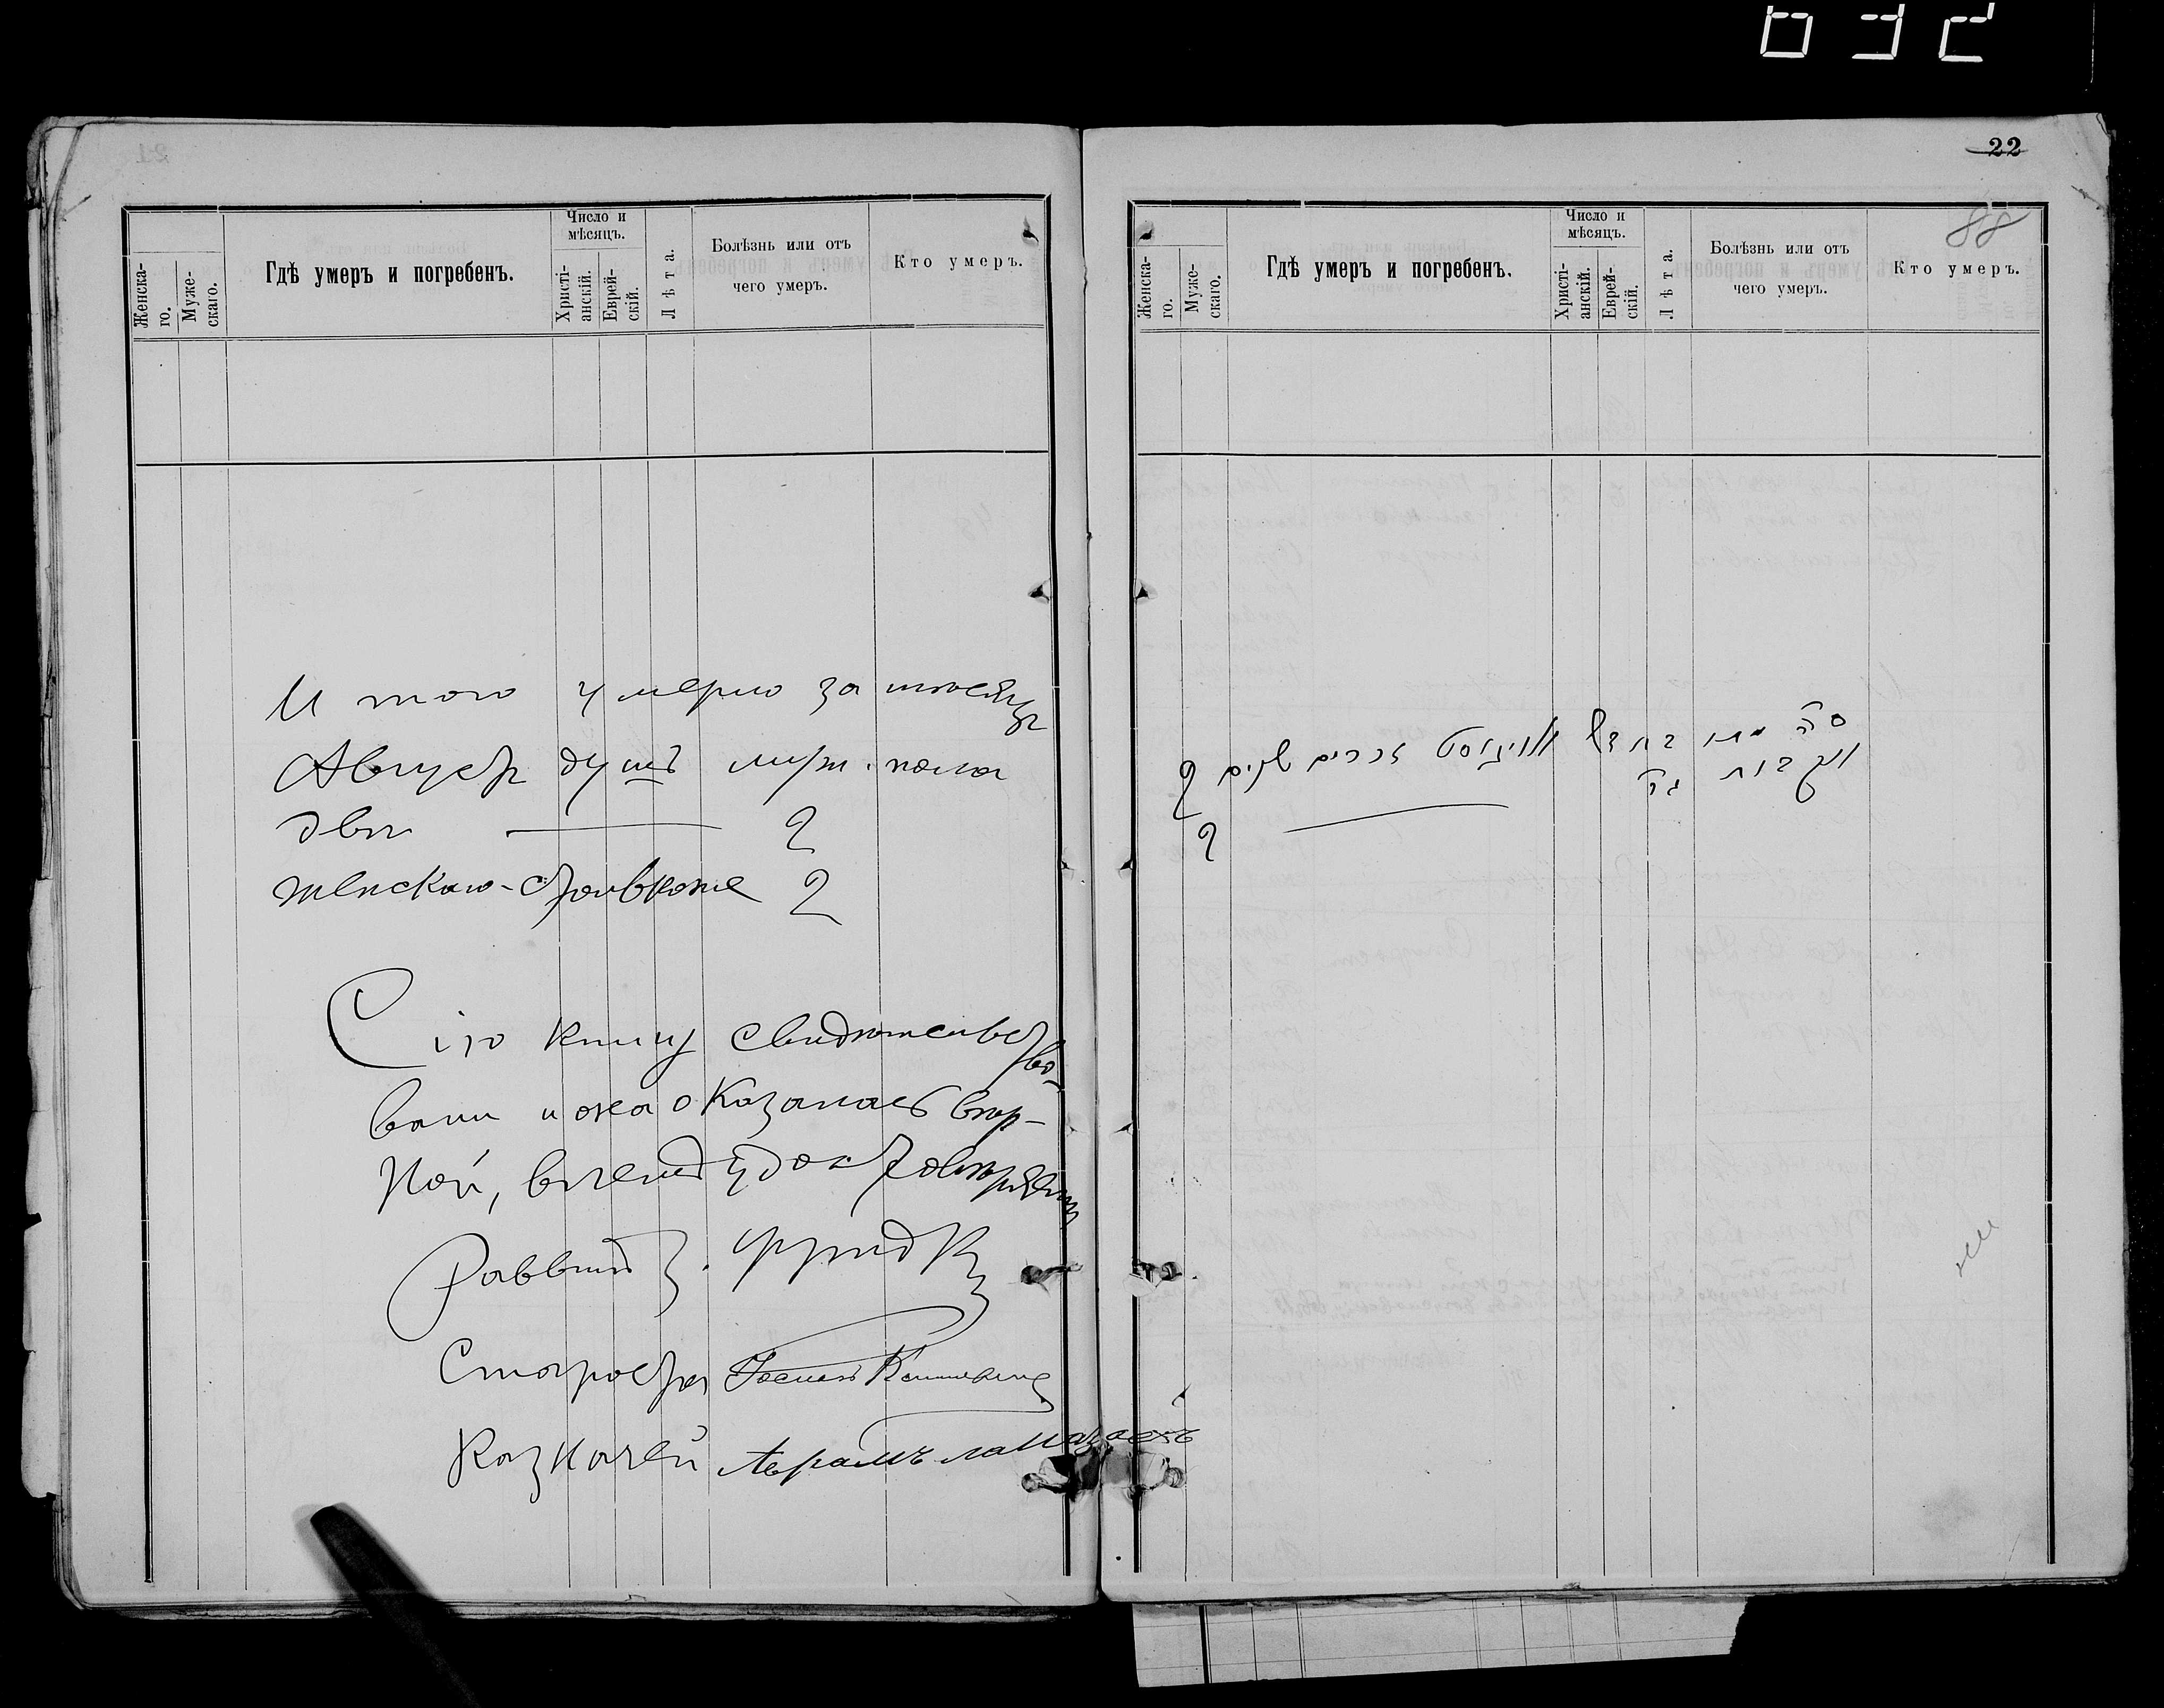 032
22
88
Женска-
го.
Муже-
скаго.
Гдѣ умеръ и погребенъ.
Число и
мѣсяцъ.
Христі-
анскій.
Еврей-
скій.
Лѣта.
Болѣзнь или отъ
чего умеръ.
Кто умеръ.
Итого умерло за мѣсяцъ
Августъ душъ муж. пола
двѣ — 2
женскаго - столькоже 2
Сію книгу свидѣтельство-
вали и она оказалась вѣр-
ной, въ чемъ удостовѣряемъ
Раввинъ З.
Староста
Казначей Абрамъ
Женска-
го.
Муже-
скаго.
Гдѣ умеръ и погребенъ.
Число и
мѣсяцъ.
Христі-
анскій.
Еврей-
скій.
Лѣта.
Болѣзнь или отъ
чего умеръ.
Кто умеръ.
סה מתו בחדש אויגוסט זכרים שנים 2
2